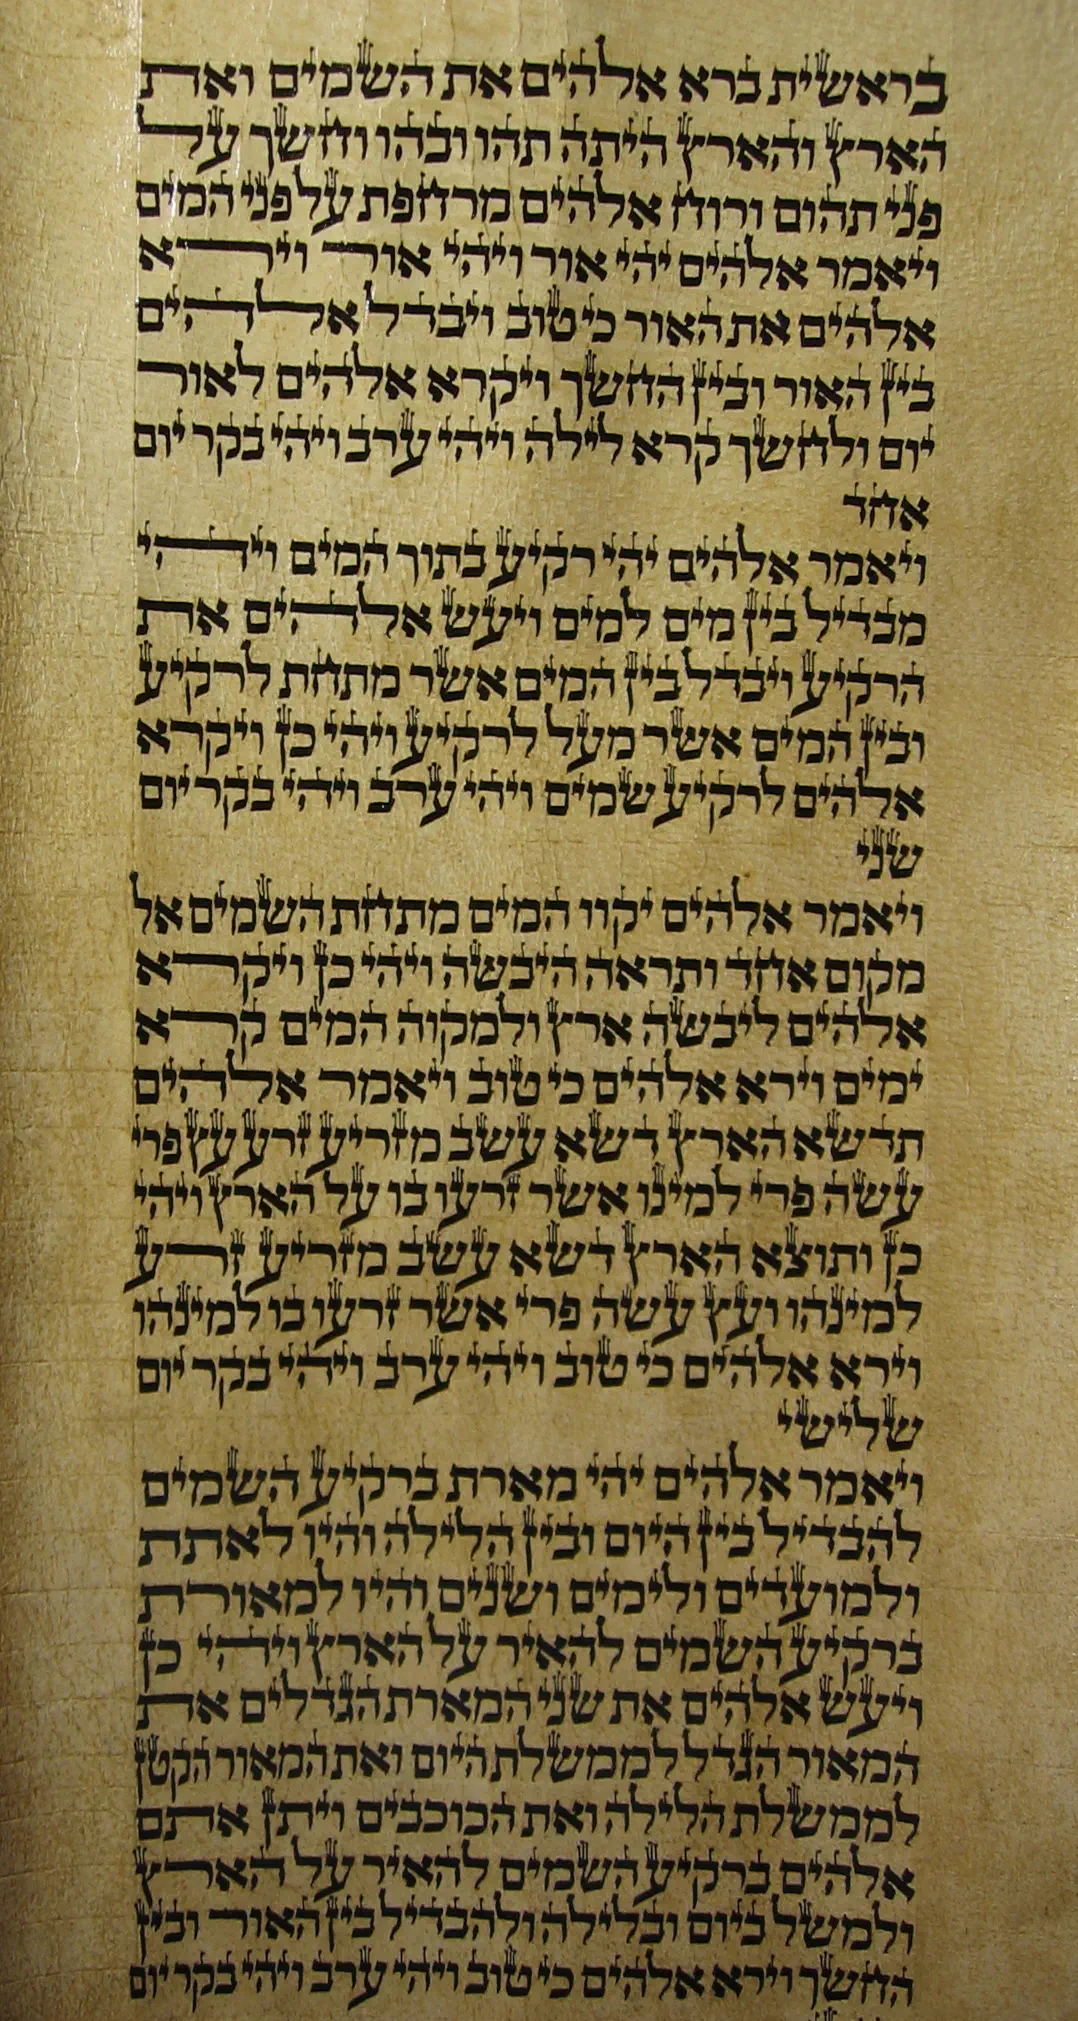 בראשית ברא אלהים את השמים ואת
הארץ והארץ היתה תהו ובהו וחשך על
פני תהום ורוח אלהים מרחפת על פני המים
ויאמר אלהים יהי אור ויהי אור וירא
אלהים את האור כי טוב ויבדל אלהים
בין האור ובין החשך ויקרא אלהים לאור
יום ולחשך קרא לילה ויהי ערב ויהי בקר יום
אחד
ויאמר אלהים יהי רקיע בתוך המים ויהי
מבדיל בין מים למים ויעש אלהים את
הרקיע ויבדל בין המים אשר מתחת לרקיע
ובין המים אשר מעל לרקיע ויהי כן ויקרא
אלהים לרקיע שמים ויהי ערב ויהי בקר יום
שני
ויאמר אלהים יקוו המים מתחת השמים אל
מקום אחד ותראה היבשה ויהי כן ויקרא
אלהים ליבשה ארץ ולמקוה המים קרא
ימים וירא אלהים כי טוב ויאמר אלהים
תדשא הארץ דשא עשב מזריע זרע עץ פרי
עשה פרי למינו אשר זרעו בו על הארץ ויהי
כן ותוצא הארץ דשא עשב מזריע זרע
למינהו ועץ עשה פרי אשר זרעו בו למינהו
וירא אלהים כי טוב ויהי ערב ויהי בקר יום
שלישי
ויאמר אלהים יהי מארת ברקיע השמים
להבדיל בין היום ובין הלילה והיו לאתת
ולמועדים ולימים ושנים והיו למאורת
ברקיע השמים להאיר על הארץ ויהי כן
ויעש אלהים את שני המארת הגדלים את
המאור הגדל לממשלת היום ואת המאור הקטן
לממשלת הלילה ואת הכוכבים ויתן אתם
אלהים ברקיע השמים להאיר על הארץ
ולמשל ביום ובלילה ולהבדיל בין האור ובין
החשך וירא אלהים כי טוב ויהי ערב ויהי בקר יום